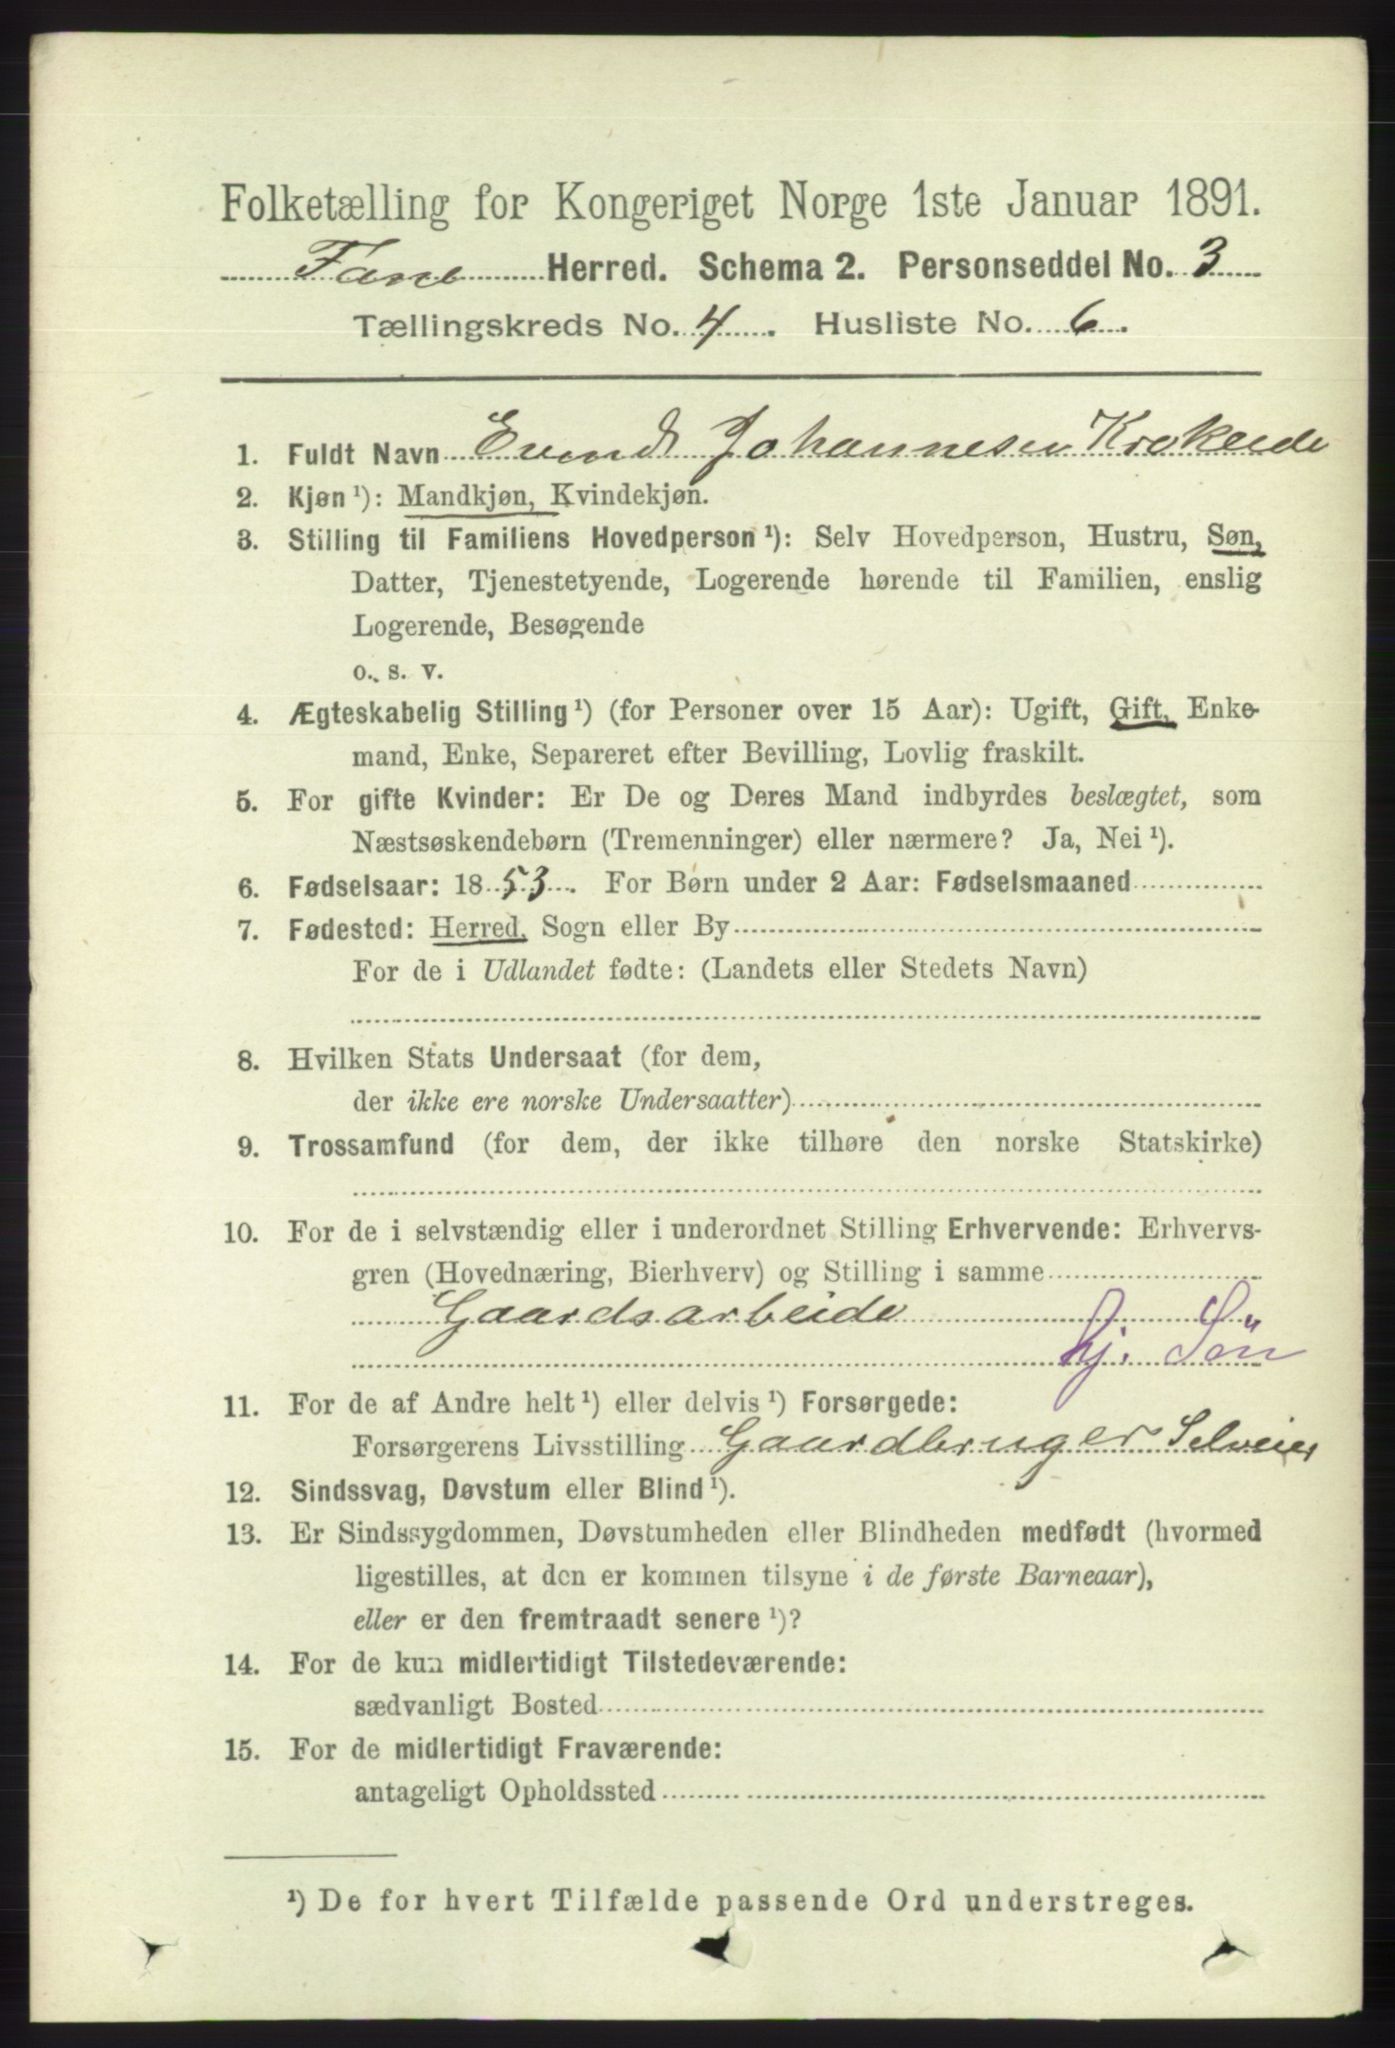 Folketælling for Kongeriget Norge 1ste Januar 1891.
Fane Herred. Schema 2. Personseddel No. 3
Tællingskreds No. 4. Husliste No. 6.
1. Fuldt Navn Johannesen Krokeide
2. Kjøn¹): Mandkjøn, Kvindekjøn.
3. Stilling til Familiens Hovedperson¹): Selv Hovedperson, Hustru, Søn,
Datter, Tjenestetyende, Logerende hørende til Familien, enslig
Logerende, Besøgende
o. s. v.
4. Ægteskabelig Stilling¹) (for Personer over 15 Aar): Ugift, Gift, Enke-
mand, Enke, Separeret efter Bevilling, Lovlig fraskilt.
5. For gifte Kvinder: Er De og Deres Mand indbyrdes beslægtet, som
Næstsøskendebørn (Tremenninger) eller nærmere? Ja, Nei¹).
6. Fødselsaar: 1853. For Børn under 2 Aar: Fødselsmaaned
7. Fødested: Herred, Sogn eller By
For de i Udlandet fødte: (Landets eller Stedets Navn)
8. Hvilken Stats Undersaat (for dem,
der ikke ere norske Undersaatter)
9. Trossamfund (for dem, der ikke tilhøre den norske Statskirke)
10. For de i selvstændig eller i underordnet Stilling Erhvervende: Erhvervs-
gren (Hovednæring, Bierhverv) og Stilling i samme
Gaardsarbeide
hj. Søn
11. For de af Andre helt¹) eller delvis¹) Forsørgede:
Forsørgerens Livsstilling Gaardbruger Selveier
12. Sindssvag, Døvstum eller Blind¹).
13. Er Sindssygdommen, Døvstumheden eller Blindheden medfødt (hvormed
ligestilles, at den er kommen tilsyne i de første Barneaar),
eller er den fremtraadt senere¹)?
14. For de kun midlertidigt Tilstedeværende:
sædvanligt Bosted
15. For de midlertidigt Fraværende:
antageligt Opholdssted
¹) De for hvert Tilfælde passende Ord understreges.